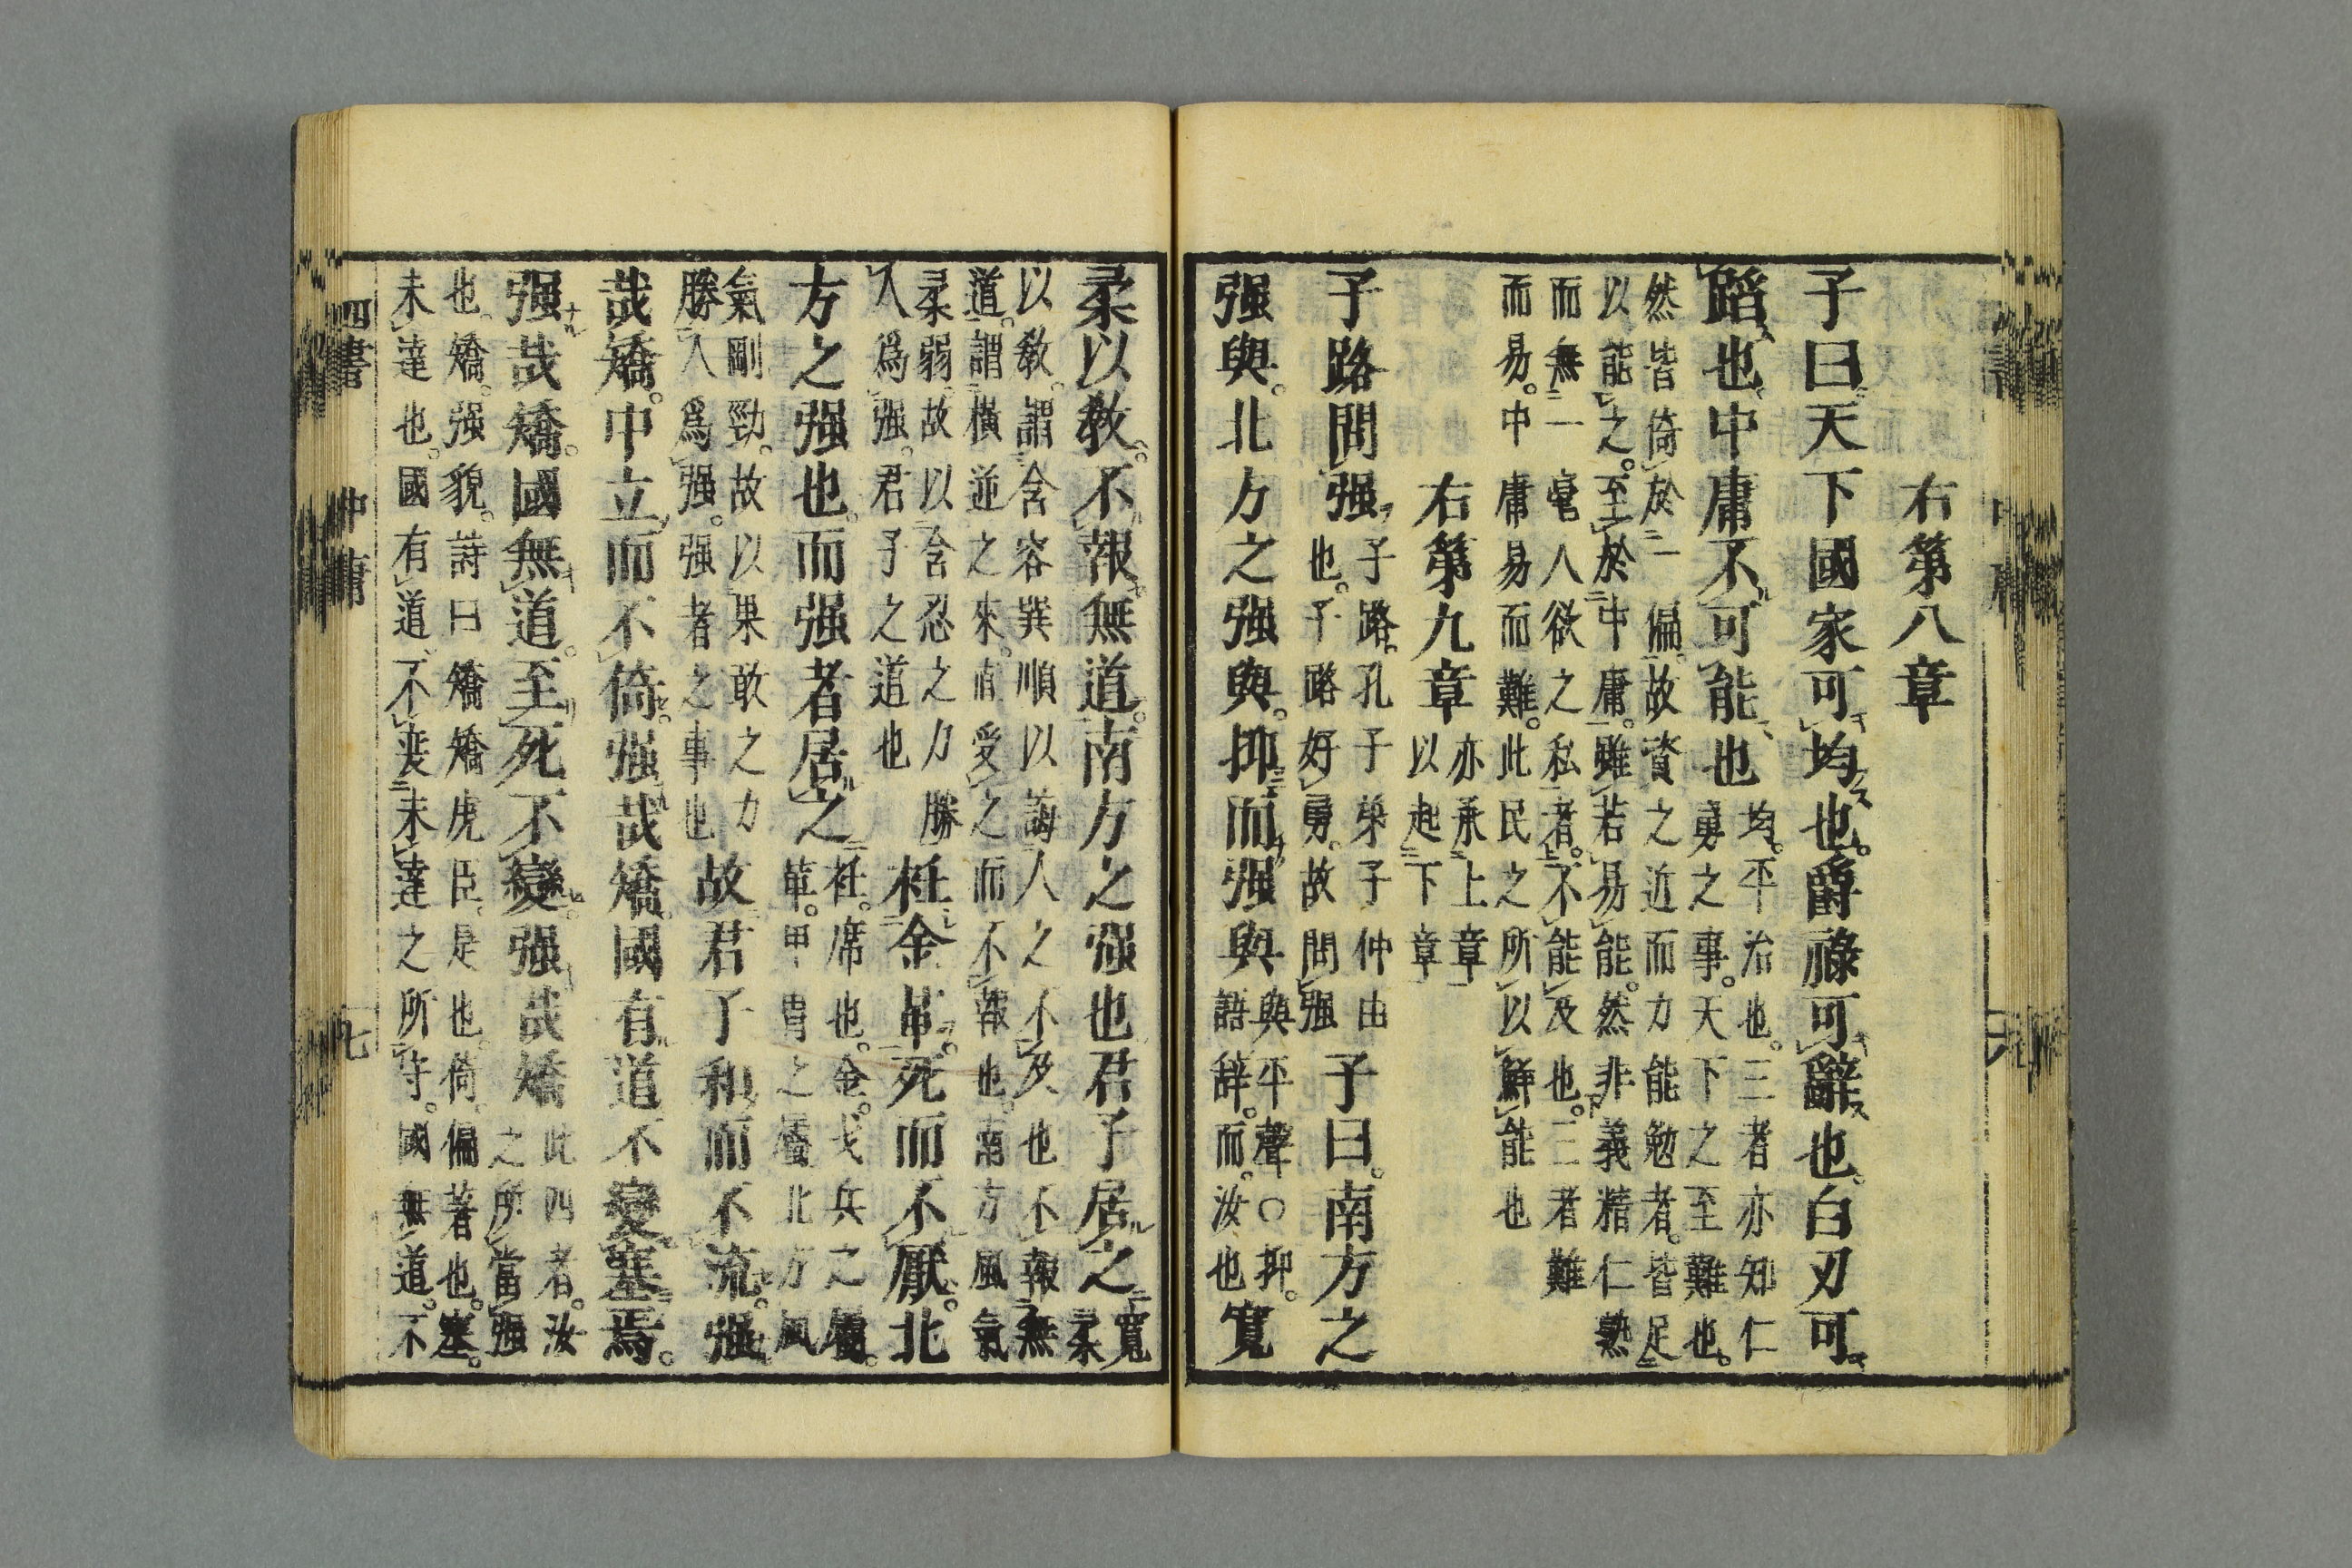 右第八章
子曰。天下國家可均也。爵祿可辭也。白刃可
蹈也。中庸不可能也
均。平治也。三者亦知仁
勇之事。天下之至難也。
然皆倚於一偏。故資之近而力能勉者。皆足
以能之。至於中庸。雖若易能。然非義精仁熟
而無一毫人欲之私者。不能及也。三者難
而易。中庸易而難。此民之所以鮮能也
右第九章
亦承上章
以起下章
子路問强
子路。孔子弟子仲由
也。子路好勇。故問强
子曰。南方之
强與。北方之强與。抑而强與
與平聲○抑。
語辭。而。汝也
寬
柔以敎。不報無道。南方之强也君子居之
寬
柔
以敎。謂含容巽順以誨人之不及也不報無
道。謂橫逆之來。直受之而不報也。南方風氣
柔弱故以含忍之力勝
人爲强。君子之道也
衽金革。死而不厭。北
方之强也。而强者居之
衽。席也。金。戈兵之屬。
革。甲冑之屬北方風
氣剛勁。故以果敢之力
勝人爲强。强者之事也
故君子和而不流。强
哉矯。中立而不倚。强哉矯。國有道不變塞焉。
强哉矯。國無道。至死不變。强哉矯
此四者。汝
之所當强
也。矯。强貌。詩曰矯矯虎臣。是也。倚。偏著也。塞。
未達也。國有道、不喪未達之所守。國無道。不
四書 中庸 七